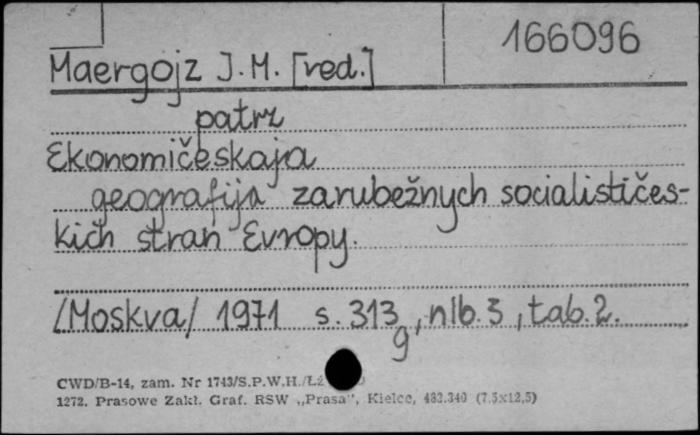 166096
Maergojz J.M. [red.]
patrz
Ekonomičeskaja
geografija zarubežnych socialističes-
kich stran Evropy.
/Moskva/ 1971 s. 313, nlb. 3, tab. 2.
g
CWD/B-14, zam. Nr 1743/S.P.W.H./Łż
1272. Prasowe Zakł. Graf. RSW „Prasa", Kielce, 482.340 (7,5x12,5)